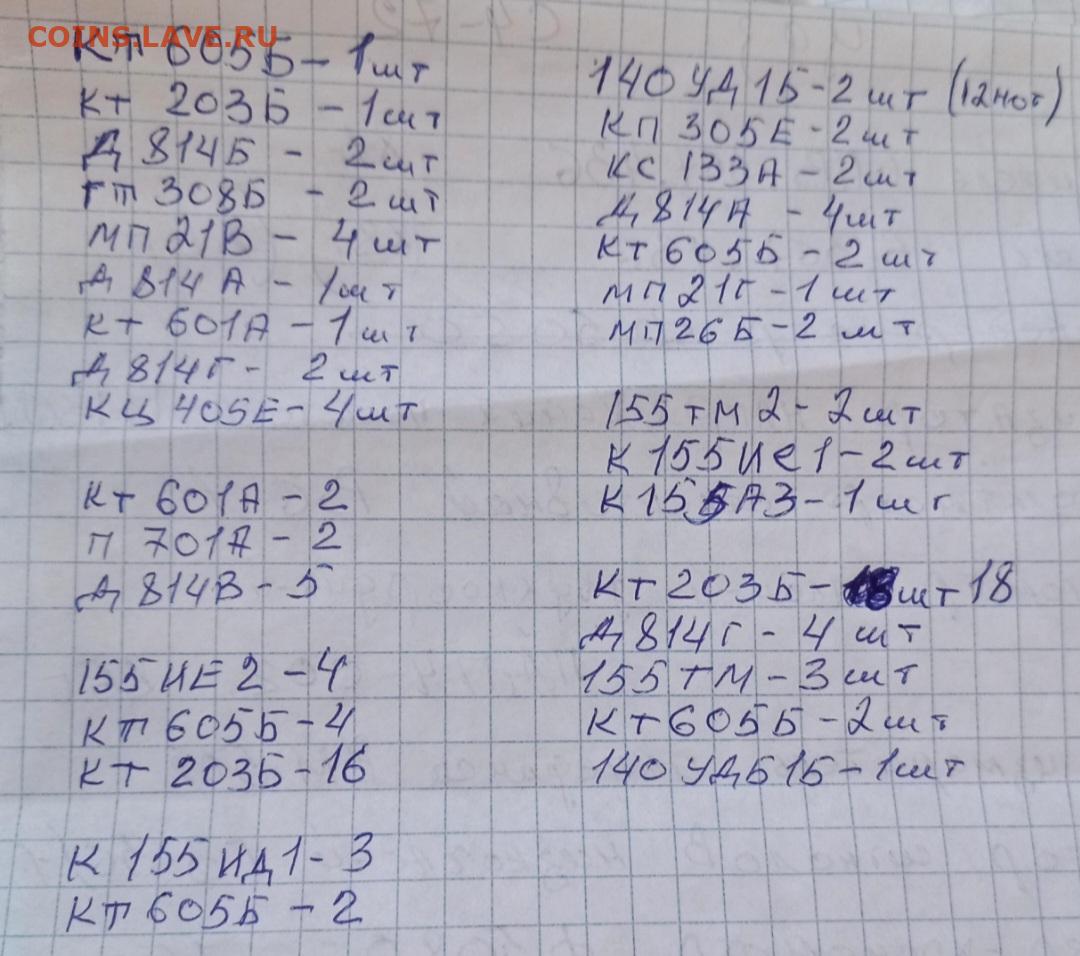 COINS.LAVE.RU
КТ 605Б - 1шт
КТ 203Б - 1шт
Д 814Б - 2шт
ГТ 308Б - 2шт
МП 21В - 4шт
Д 814А - 1шт
КТ 601А - 1шт
Д 814Г - 2шт
КЦ 405Е - 4шт
КТ 601А - 2
П 701А - 2
Д 814В - 5
155ИЕ2 - 4
КТ 605Б - 4
КТ 203Б - 16
К 155ИД1 - 3
КТ 605Б - 2
140УД1Б - 2шт (12нот)
КП 305Е - 2шт
КС 133А - 2шт
Д 814А - 4шт
КТ 605Б - 2шт
МП 21Г - 1шт
МП 26Б - 2шт
155ТМ2 - 2шт
К 155ИЕ1 - 2шт
К 155А3 - 1шт
КТ 203Б - шт 18
Д 814Г - 4шт
155ТМ - 3шт
КТ 605Б - 2шт
140УДБ1Б - 1шт